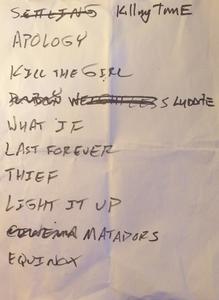 Killing TIME
APOLOGY
KILL THE GIRL
LUDDITE
WHAT IF
LAST FOREVER
THIEF
LIGHT IT UP
MATADORS
EQUINOX